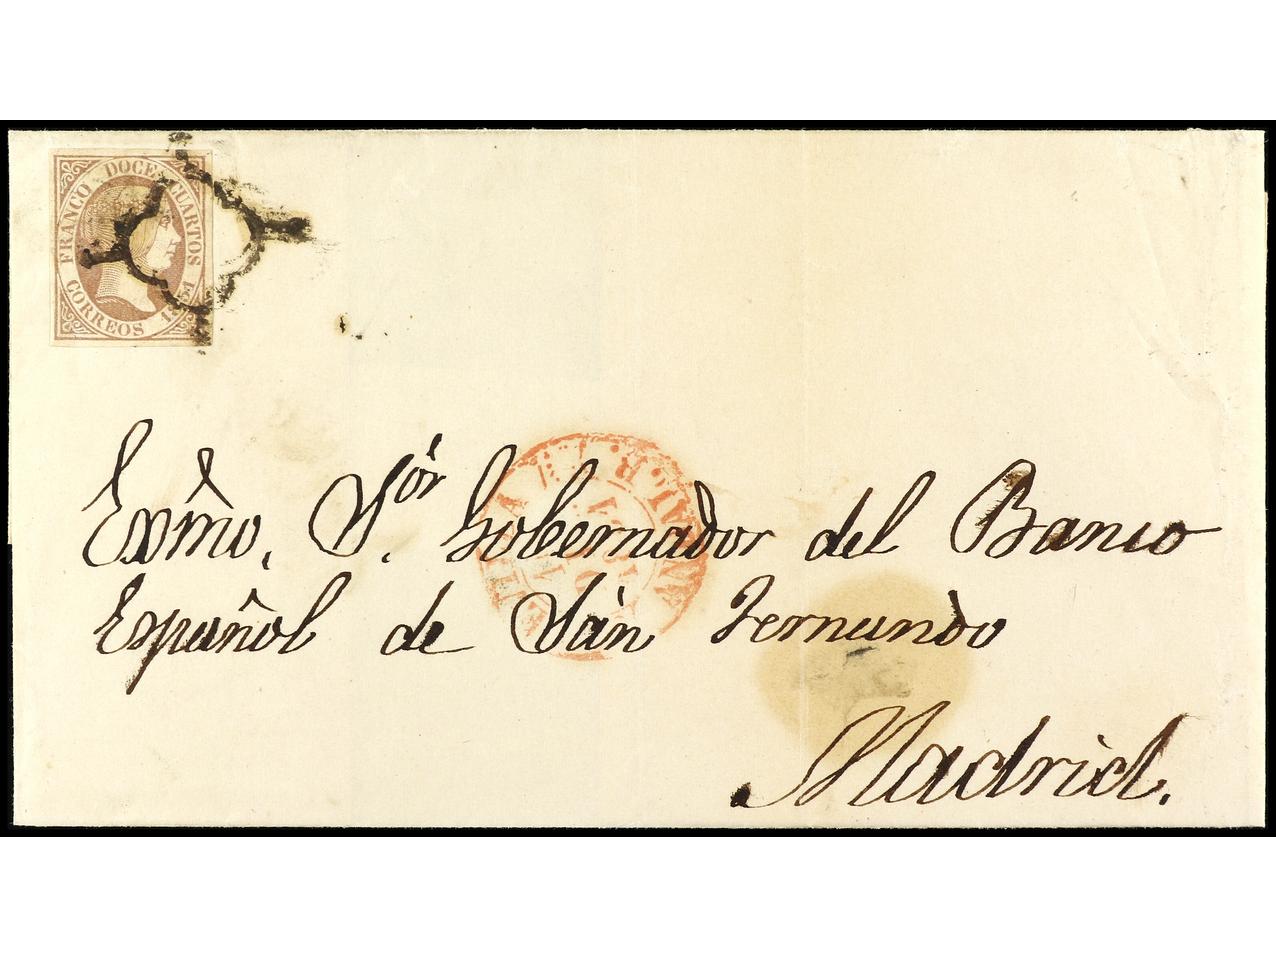 FRANCO DOCE CUARTOS
CORREOS 1851
Exm̃o. S.ór Gobernador del Banco
Español de Sán Fernando
Madrid.